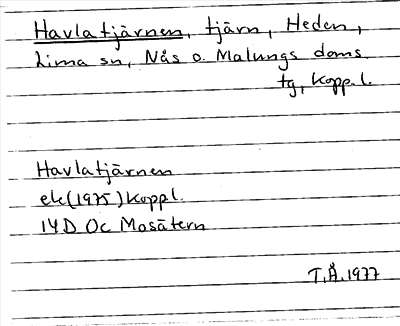 Havlatjärnen, tjärn, Heden,
Lima sn, Nås o. Malungs doms
tg, Kopp. l.
Havlatjärnen
ek (1975) Koppl.
14D 0c Mosätern
T.Å. 1977